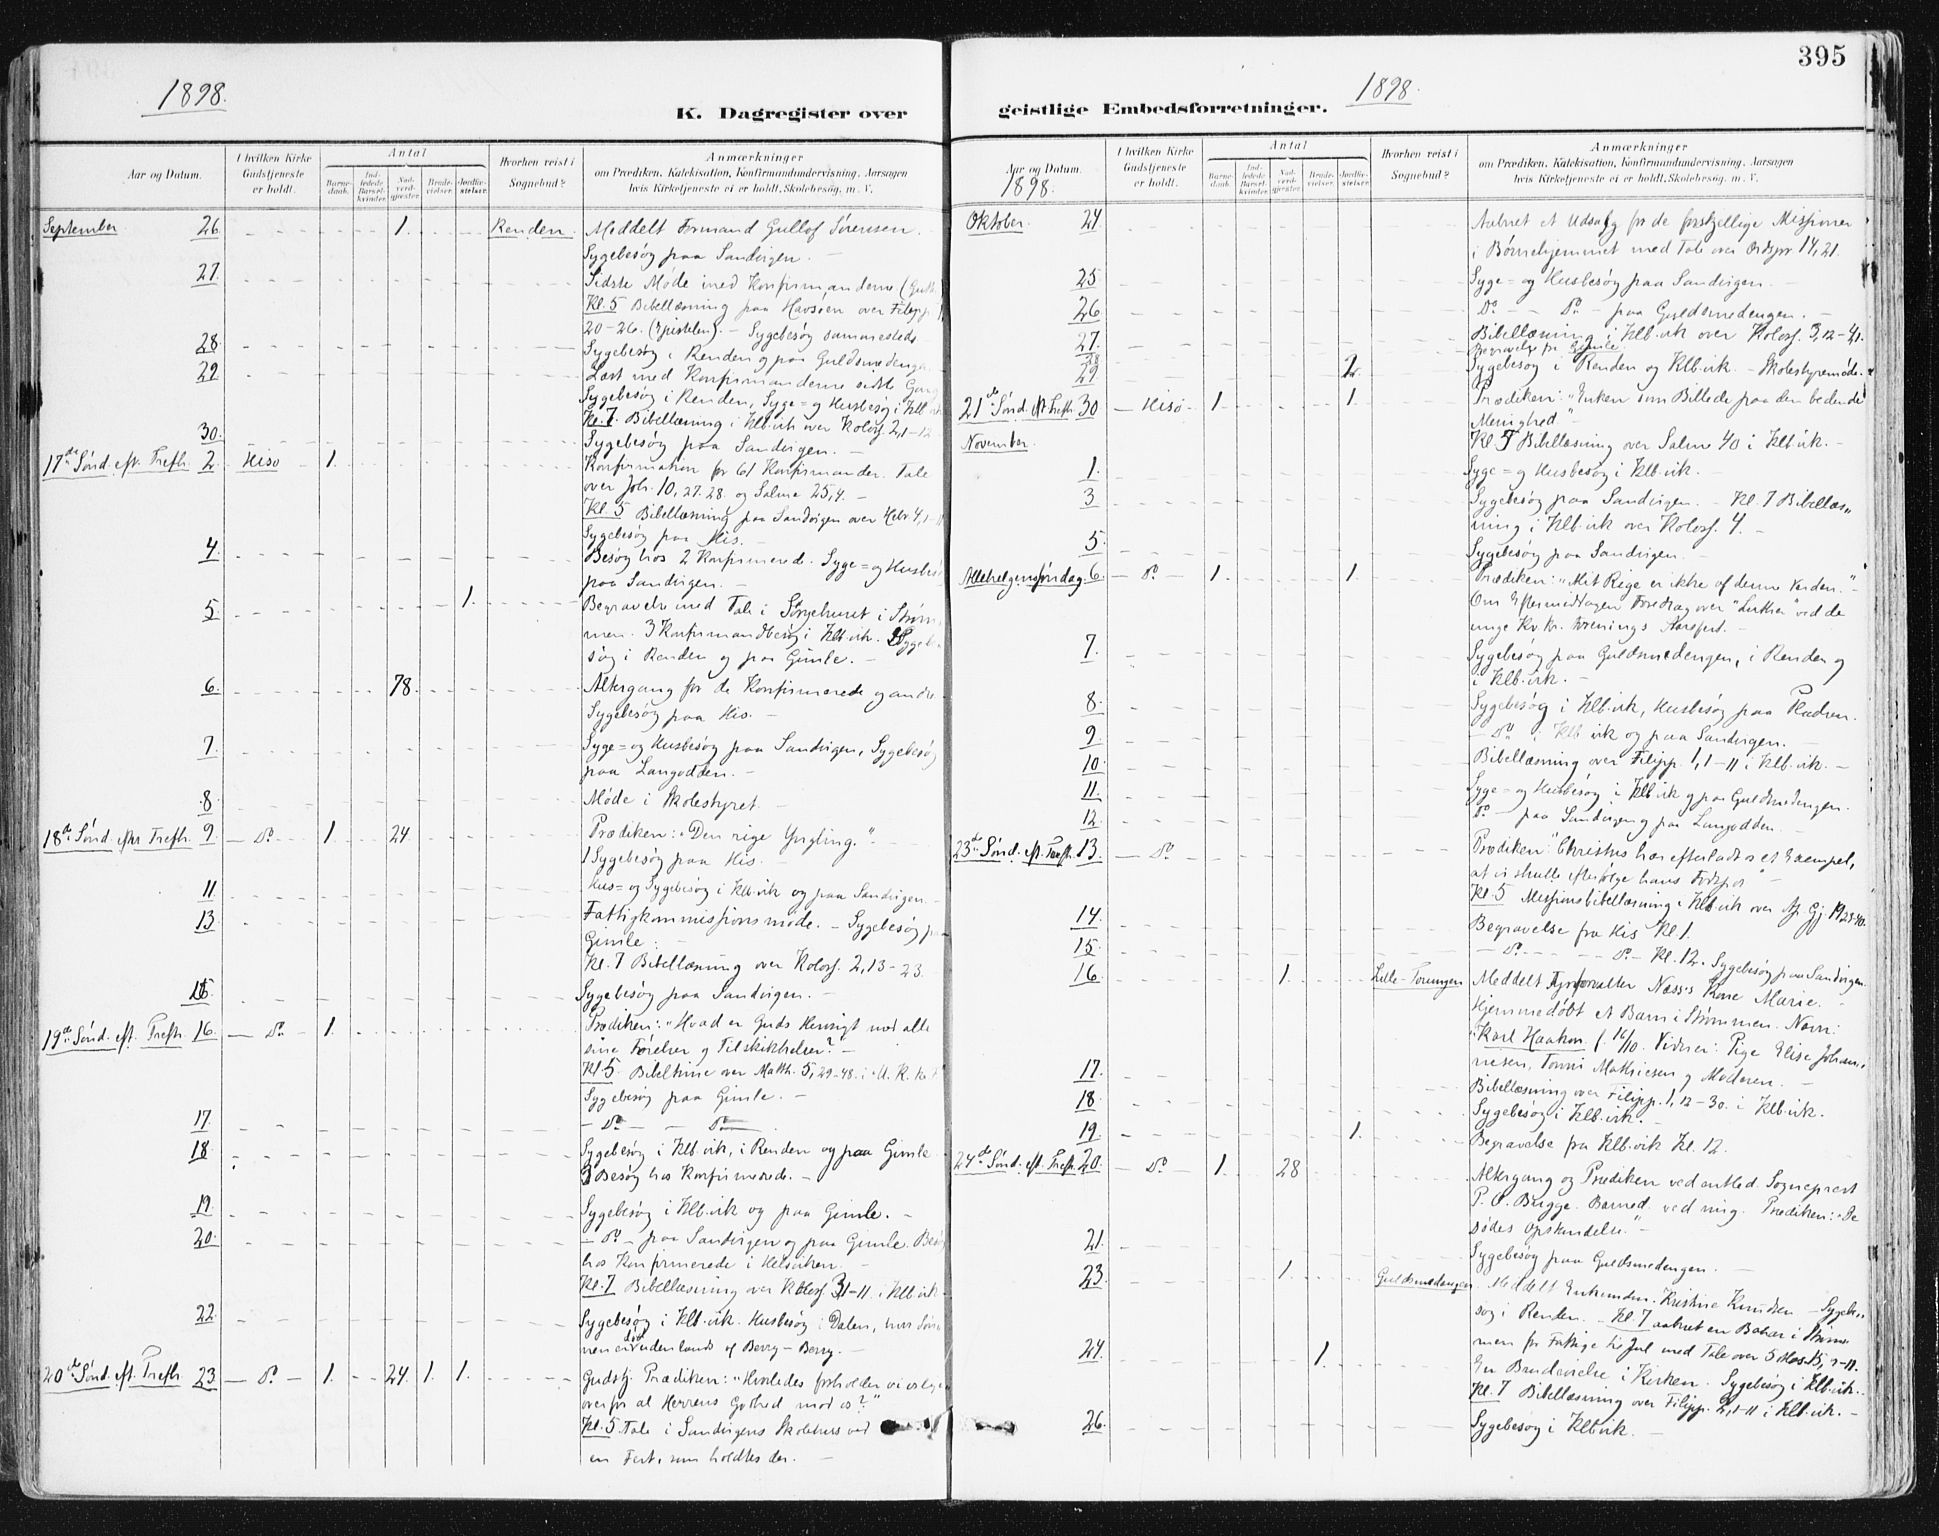 1898.
K. Dagregister over
Aar og Datum.
I hvilken Kirke Gudstjeneste er holdt.
Antal
Barne-daab.
Ind-ledede Barsel-kvinder.
Nad-verd-gjæster.
Brude-vielser.
Jordfæ-stelser.
Hvorhen reist i Sognebud?
Anmærkninger
om Prædiken, Katekisation, Konfirmandundervisning, Aarsagen
hvis Kirketjeneste ei er holdt, Skolebesøg, m. V.
September 26. 1. Renden. Meddelt Formand Gullof Sørensen.
Sygebesøg paa Sandvigen. –
27. Sidste Møde med Konfirmanderne
Kl. 5 Bibellæsning paa Havsøen over Filipp. 1,
20-26. (Epistelen). – Sygebesøg sammesteds
28. Sygebesøg i Renden og paa Guldsmedengen
29. Læst med Konfirmanderne sidste Gang
Sygebesøg i Renden, Syge= og Husbesøg i Klb.vik
Kl. 7. Bibellæsning i Klb.vik over Kolos. 2,1-12
30. Sygebesøg paa Sandvigen. –
17de Sønd. eft. Trefh. 2 Hisø 1. Konfirmation for 61 Konfirmander. Tale
over Joh. 10, 27.28. og Salme 25,4. –
Kl. 5 Bibellæsning paa Sandvigen over Hebr 4,1-11
Sygebesøg paa His. –
4. Besøg hos 2 Konfirmerede. Syge= og Husbesøg
paa Sandvigen. –
5. 1. Begravelse med Tale i Sørgehuset i Strøm-
men. 3 Konfirmandbesøg i Klb.vik. Sygebe-
søg i Renden og paa Gimle. –
6. 78 Altergang for de Konfirmerede og andre
Sygebesøg paa His. –
7. Syge= og Husbesøg paa Sandvigen, Sygebesøg
paa Langodden. –
8. Møde i Skolestyret. –
18de Sønd. efter Trefh. 9. – Do – 1. 24. Prædiken: "Den rige Yngling." –
1 Sygebesøg paa His. –
11 Hus= og Sygebesøg i Klb.vik og paa Sandvigen. –
13. Fattigkommissionsmøde. – Sygebesøg paa
Gimle. –
Kl. 7 Bibellæsning over Kolos. 2,13-23.
15. Sygebesøg paa Sandvigen. –
19de Sønd. eft. Trefh. 16. – Do – 1. Prædiken: "Hvad er Guds Hensigt med alle
sine Førelser og Tilskikkelser?" –
Kl. 5. Bibeltime over Matth. 5, 29-48. i U. K.
Sygebesøg paa Gimle. –
17. – Do – Do –
18. Sygebesøg i Klb.vik, i Renden og paa Gimle
3 Besøg hos Konfirmerede. –
19. Sygebesøg i Klb.vik og paa Gimle. –
20. – Do – paa Sandvigen og paa Gimle. Besøg
hos Konfirmerede i Helsviken. –
Kl. 7 Bibellæsning over Kolos. 3,1-11. i Klb.vik.
22. Sygebesøg i Klb.vik. Husbesøg i Dalen, hvis Søn
nen død udenlands af Berry-Berry. –
20de Sønd. eft. Trefh. 23 – Do – 1. 24. 1. 1. Gudstj. Prædiken: "Hvorledes forholder vi os lige
overfor al Herrens Godhed mod os?"
Kl. 5 Tale i Sandvigens Skolehus ved
en Fest, som holdtes der. –
395
1898.
geistlige Embedsforretninger.
Aar og Datum.
1898.
I hvilken Kirke Gudstjeneste er holdt.
Antal
Barne-daab.
Ind-ledede Barsel-kvinder.
Nad-verd-gjæster.
Brude-vielser.
Jordfæ-stelser.
Hvorhen reist i Sognebud?
Anmærkninger
om Prædiken, Katekisation, Konfirmandundervisning, Aarsagen
hvis Kirketjeneste ei er holdt, Skolebesøg, m. V.
Oktober. 24. Aabnet et Udsalg for de forskjellige Missioner
i Børnehjemmet med Tale over Ordspr 14,21.
25. Syge= og Husbesøg paa Sandvigen. –
26. Do – Do – paa Guldsmedengen. –
27. Bibellæsning i Klb.vik over Kolos. 3,12-4,1.
28 Begravelse fra Gimle
29 2. Sygebesøg i Renden og Klb.vik. – Skolestyremøde.
21de Sønd. eft. Trefh. 30 – Hisø 1. 1. Prædiken: "Enken som Billede paa den bedende
Menighed"
November. Kl. 5 Bibellæsning over Salme 40 i Klb.vik. –
1. Syge= og Husbesøg i Klb.vik. –
3 Sygebesøg paa Sandvigen. – Kl. 7 Bibellæs-
ning i Klb.vik over Kolos. 4. –
5. Sygebesøg paa Sandvigen. –
Allehelgensøndag. 6. – Do – 1. 1. Prædiken: "Mit Rige er ikke af denne Verden." –
Om Eftermiddagen Foredrag over "Luther" ved de
unge Kv. kr. Forenings Aarsfest. –
7. Sygebesøg paa Guldsmedengen, i Renden og
i Klb.vik. –
8. Sygebesøg i Klb.vik, Husbesøg paa Pladsen.
9. – Do – i Klb.vik og paa Sandvigen. –
10. Bibellæsning over Filipp. 1,1-11 i Klb.vik. –
11. Syge= og Husbesøg i Klb.vik og paa Guldsmedengen.
12. Do – paa Sandvigen og paa Langodden. –
23de Sønd. eft. Trefh. 13. – Do Prædiken: "Christus har efterladt os et Exempel,
at vi skulle efterfølge hans Fodspor" –
Kl. 5 Missionsbibellæsning i Klb.vik over Ap. Gj. 19,23-40.
14. Begravelse fra His Kl. 1.
15. – Do – Do – Kl. 12. Sygebesøg paa Sandvigen.
16. 1. Lille-Torungen Meddelt Fyrforvalter Næss's Kone Marie. –
Hjemmedøbt et Barn i Strømmen. Navn:
"Karl Haakon f. 16/10. Vidner: Pige Elise Johan-
nesen, Tonni Mathiesen og Moderen. –
17. Bibellæsning over Filipp. 1, 12-30. i Klb.vik.
18 Sygebesøg i Klb.vik. –
19. 1. Begravelse fra Klb.vik Kl. 12.
24de Sønd. eft. Trefh. 20. – Do – 1. 28 Altergang og Prædiken ved entled. Sogneprest
P. O. Bugge. Barned. ved mig. Prædiken: "De
dødes Opstandelse." –
21. Sygebesøg paa Guldsmedengen. –
23. 1. Guldsmedengen Meddelt Enkemden. Kristine Knudsen – Sygebe-
søg i Renden. – Kl. 7 aabnet en Bazar i Strøm-
men for Fattige til Jul med Tale over 5 Mos. 15, 7-11.
24. 1. En Brudevielse i Kirken. Sygebesøg i Klb.vik.
Kl. 7 Bibellæsning over Filipp. 2,1-11 i Klb.vik. –
26. Sygebesøg i Klb.vik. –